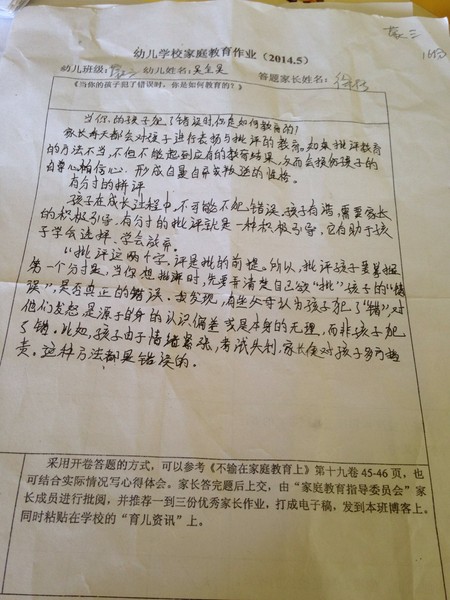 蒙三
幼儿学校家庭教育作业（2014.5）
幼儿班级：蒙三 幼儿姓名： 答题家长姓名：
《当你的孩子犯了错误时，你是如何教育的？》
当你的孩子犯了错误时你是如何教育的？
家长每天都会对孩子进行表扬与批评的教育。如果批评教育
的方法不当，不但不能起到应有的教育结果，反而会损伤孩子的
自尊心和信心，形成自卑自卑或叛逆的性格。
有分寸的批评
孩子在成长过程中，不可能不犯错误，孩子有错，需要家长
的积极引导，有分寸的批评就是一种积极引导，它有助于孩
子学会选择，学会放弃。
“批评这两个字，评是批的前提。所以，批评孩子要掌握
第一个分寸是，当你想批评时，先要弄清楚自己欲“批”孩子的“错
误”，是否真正的错误。我发现，有些父母认为孩子犯了“错”对
他们发怒，是源于自身的认识偏差或是本身的无理，而非孩子犯
了错，比如，孩子由于情绪紧张，考试失利，家长便对孩子多方指
责。这种方法都是错误的。
采用开卷答题的方式，可以参考《不输在家庭教育上》第十九卷 45-46 页，也
可结合实际情况写心得体会。家长答完题后上交，由“家庭教育指导委员会”家
长成员进行批阅，并推荐一到三份优秀家长作业，打成电子稿，发到本班博客上。
同时粘贴在学校的“育儿资讯”上。